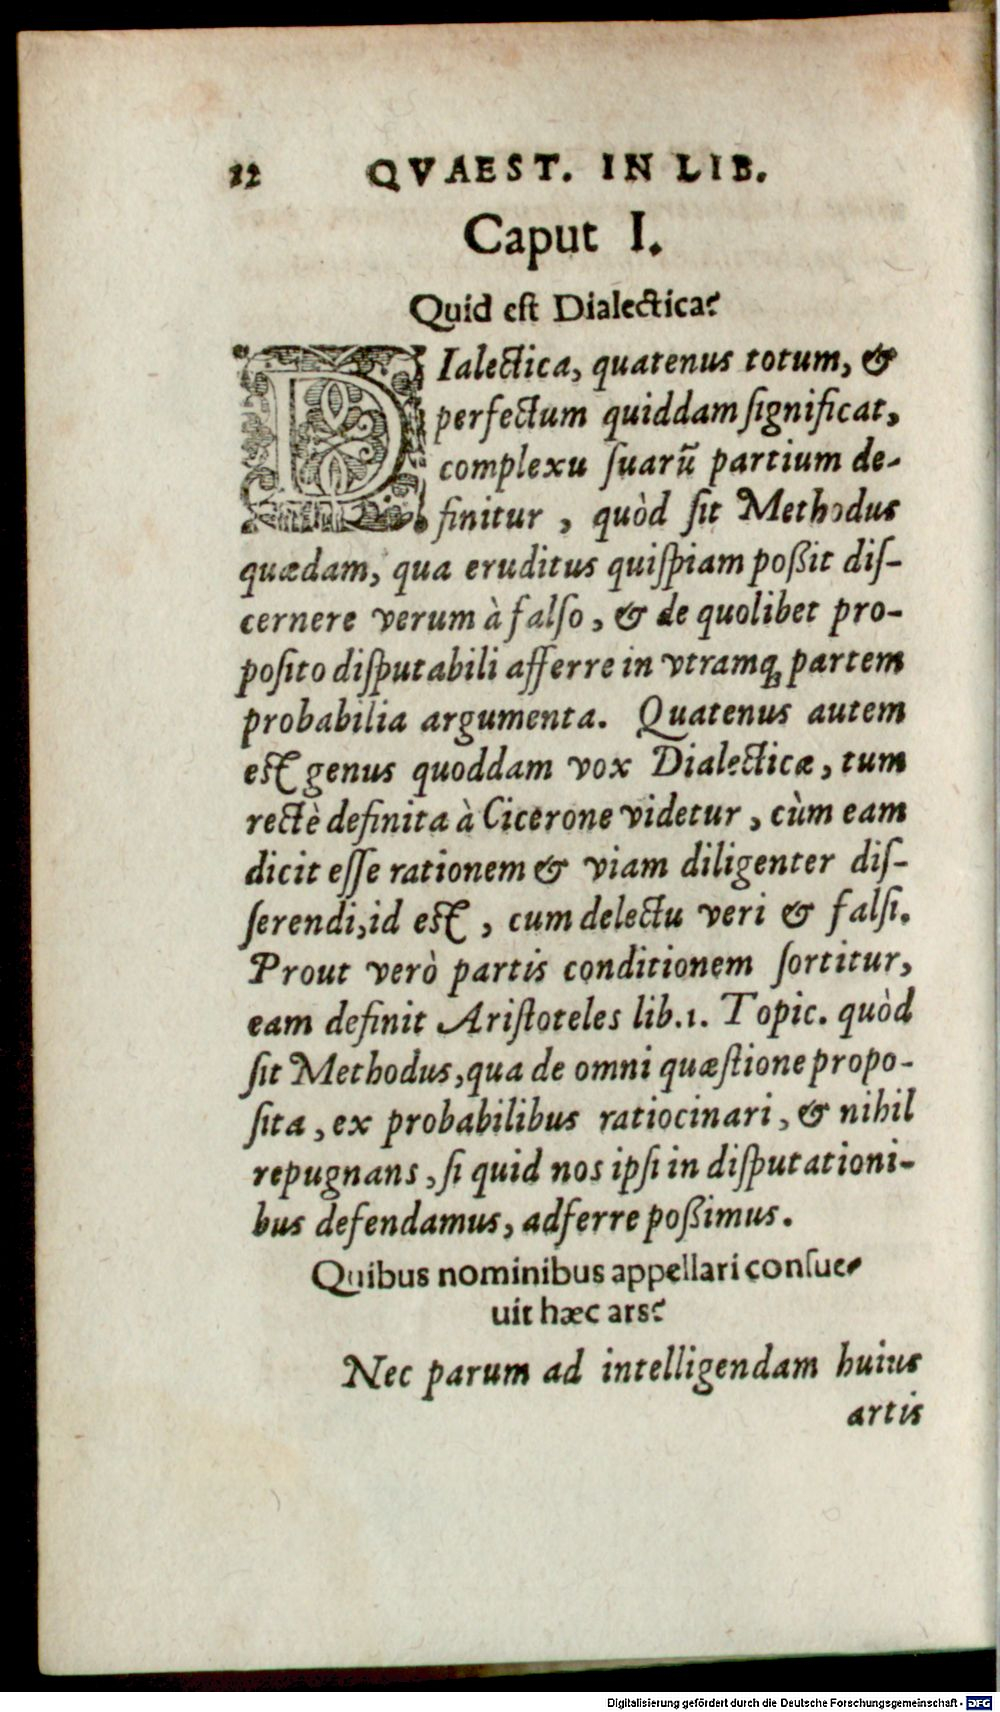 12 QVAEST. IN LIB.
Caput I.
Quid est Dialectica?
DIalectica, quatenus totum, &
perfectum quiddam ſignificat,
complexu ſuarū partium de-
finitur, quòd ſit Methodus
quædam, qua eruditus quiſpiam poßit diſ-
cernere verum à falſo, & de quolibet pro-
poſito diſputabili afferre in vtramq; partem
probabilia argumenta. Quatenus autem
est genus quoddam vox Dialecticæ, tum
rectè definita à Cicerone videtur, cùm eam
dicit eſſe rationem & viam diligenter diſ-
ſerendi, id est, cum delectu veri & falſi.
Prout verò partis conditionem ſortitur,
eam definit Ariſtoteles lib.1. Topic. quòd
ſit Methodus, qua de omni quæſtione propo-
ſita, ex probabilibus ratiocinari, & nihil
repugnans, ſi quid nos ipſi in diſputationi-
bus defendamus, adferre poßimus.
Quibus nominibus appellari conſue-
uit hæc ars?
Nec parum ad intelligendam huius
artis
Digitalisierung gefördert durch die Deutsche Forschungsgemeinschaft - DFG